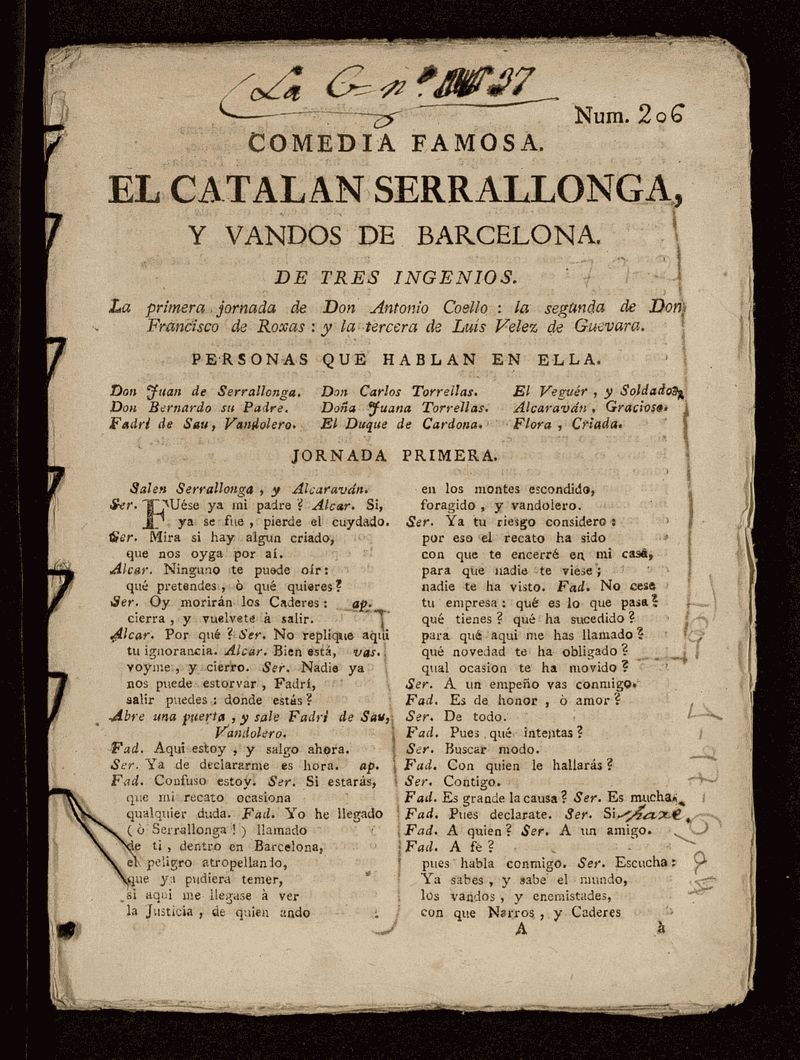 La C n.º 37
Num. 206
COMEDIA FAMOSA.
EL CATALAN SERRALLONGA,
Y VANDOS DE BARCELONA.
DE TRES INGENIOS.
La primera jornada de Don Antonio Coello : la segunda de Don
Francisco de Roxas : y la tercera de Luis Velez de Guevara.
PERSONAS QUE HABLAN EN ELLA.
Don Juan de Serrallonga. Don Carlos Torrellas. El Veguér , y Soldados.
Don Bernardo su Padre. Doña Juana Torrellas. Alcaraván , Gracioso.
Fadrí de Sau, Vandolero. El Duque de Cardona. Flora , Criada.
JORNADA PRIMERA.
Salen Serrallonga , y Alcaraván.
Ser. FUése ya mi padre ? Alcar. Si,
ya se fue , pierde el cuydado.
Ser. Mira si hay algun criado,
que nos oyga por aí.
Alcar. Ninguno te puede oír:
qué pretendes , ò qué quieres?
Ser. Oy morirán los Caderes : ap.
cierra , y vuelvete à salir.
Alcar. Por qué ? Ser. No replique aqui
tu ignorancia. Alcar. Bien está, vas.
voyme , y cierro. Ser. Nadie ya
nos puede estorvar , Fadrí,
salir puedes : donde estás?
Abre una puerta , y sale Fadrí de Sau,
Vandolero.
Fad. Aqui estoy , y salgo ahora.
Ser. Ya de declararme es hora. ap.
Fad. Confuso estoy. Ser. Si estarás,
que mi recato ocasiona
qualquier duda. Fad. Yo he llegado
( ò Serrallonga ! ) llamado
de ti , dentro en Barcelona,
el peligro atropellando,
que ya pudiera temer,
si aqui me llegase à ver
la Justicia , de quien ando
en los montes escondido,
foragido , y vandolero.
Ser. Ya tu riesgo considero :
por eso el recato ha sido
con que te encerré en mi casa,
para que nadie te viese ;
nadie te ha visto. Fad. No cese
tu empresa : qué es lo que pasa?
qué tienes ? qué ha sucedido ?
para qué aqui me has llamado ?
qué novedad te ha obligado ?
qual ocasion te ha movido ?
Ser. A un empeño vas conmigo.
Fad. Es de honor , ò amor ?
Ser. De todo.
Fad. Pues qué intentas ?
Ser. Buscar modo.
Fad. Con quien le hallarás ?
Ser. Contigo.
Fad. Es grande la causa ? Ser. Es mucha.
Fad. Pues declarate. Ser. Si haré.
Fad. A quien ? Ser. A un amigo.
Fad. A fe ?
pues habla conmigo. Ser. Escucha :
Ya sabes , y sabe el mundo,
los vandos , y enemistades,
con que Narros , y Caderes
A à